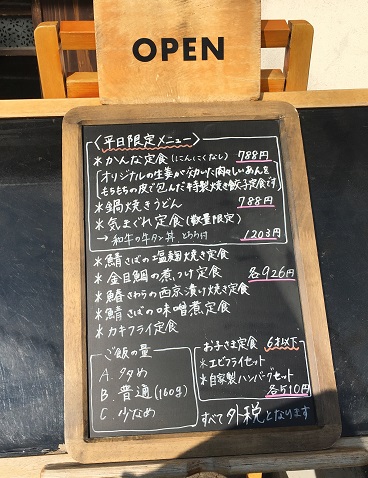 OPEN
<平日限定メニュー>
*かんな定食(にんにくなし) 788円
オリジナルの生姜が効いた肉々しいあんを
もちもちの皮で包んだ特製焼き餃子定食です
*鍋焼きうどん 788円
*気まぐれ定食(数量限定)
→和牛の牛タン丼、とろろ付 1203円
*鯖さばの塩麹焼き定食
*金目鯛の煮つけ定食 各926円
*鰆さわらの西京漬け焼き定食
*鯖さばの味噌煮定食
*カキフライ定食
ご飯の量
A. 多め
B. 普通(160g)
C. 少なめ
お子さま定食 6才以下
*エビフライセット
*自家製ハンバーグセット
各510円
すべて外税となります